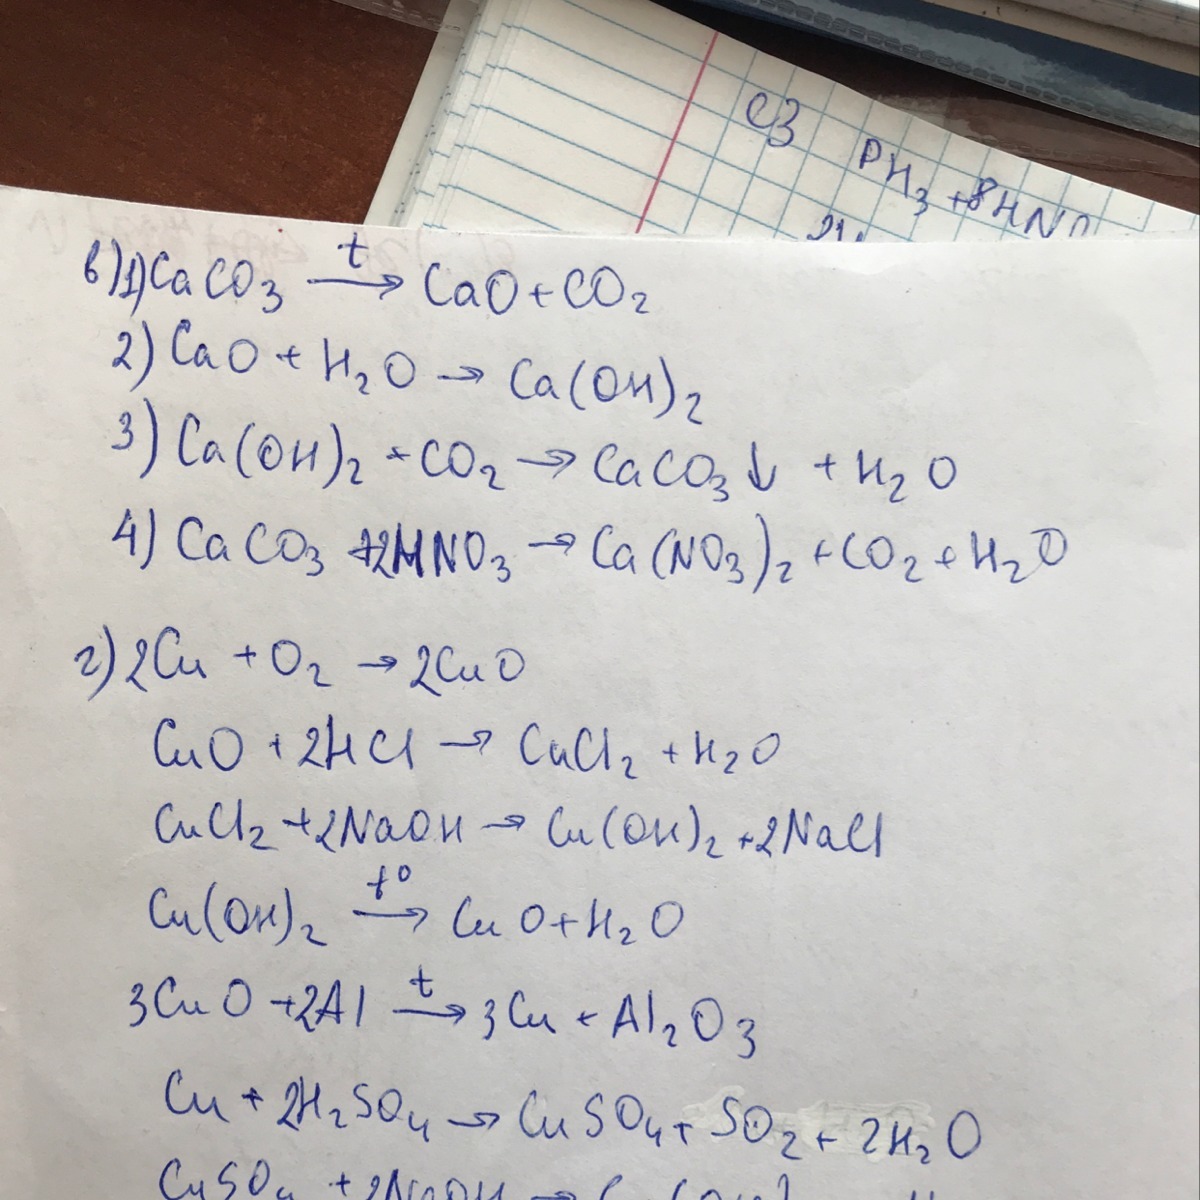 C3 PH3 + 8HNO
в) 1) CaCO3 —t→ CaO + CO2
2) CaO + H2O → Ca(OH)2
3) Ca(OH)2 + CO2 → CaCO3↓ + H2O
4) CaCO3 + 2HNO3 → Ca(NO3)2 + CO2 + H2O
г) 2Cu + O2 → 2CuO
CuO + 2HCl → CuCl2 + H2O
CuCl2 + 2NaOH → Cu(OH)2 + 2NaCl
Cu(OH)2 —t°→ CuO + H2O
3CuO + 2Al —t→ 3Cu + Al2O3
Cu + 2H2SO4 → CuSO4 + SO2 + 2H2O
CuSO4 + 2NaOH →